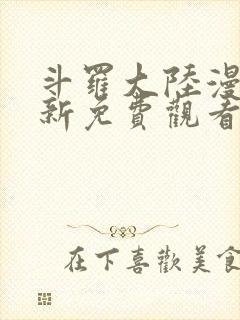 斗羅大陸漫
新免費觀看
在下喜歡美食